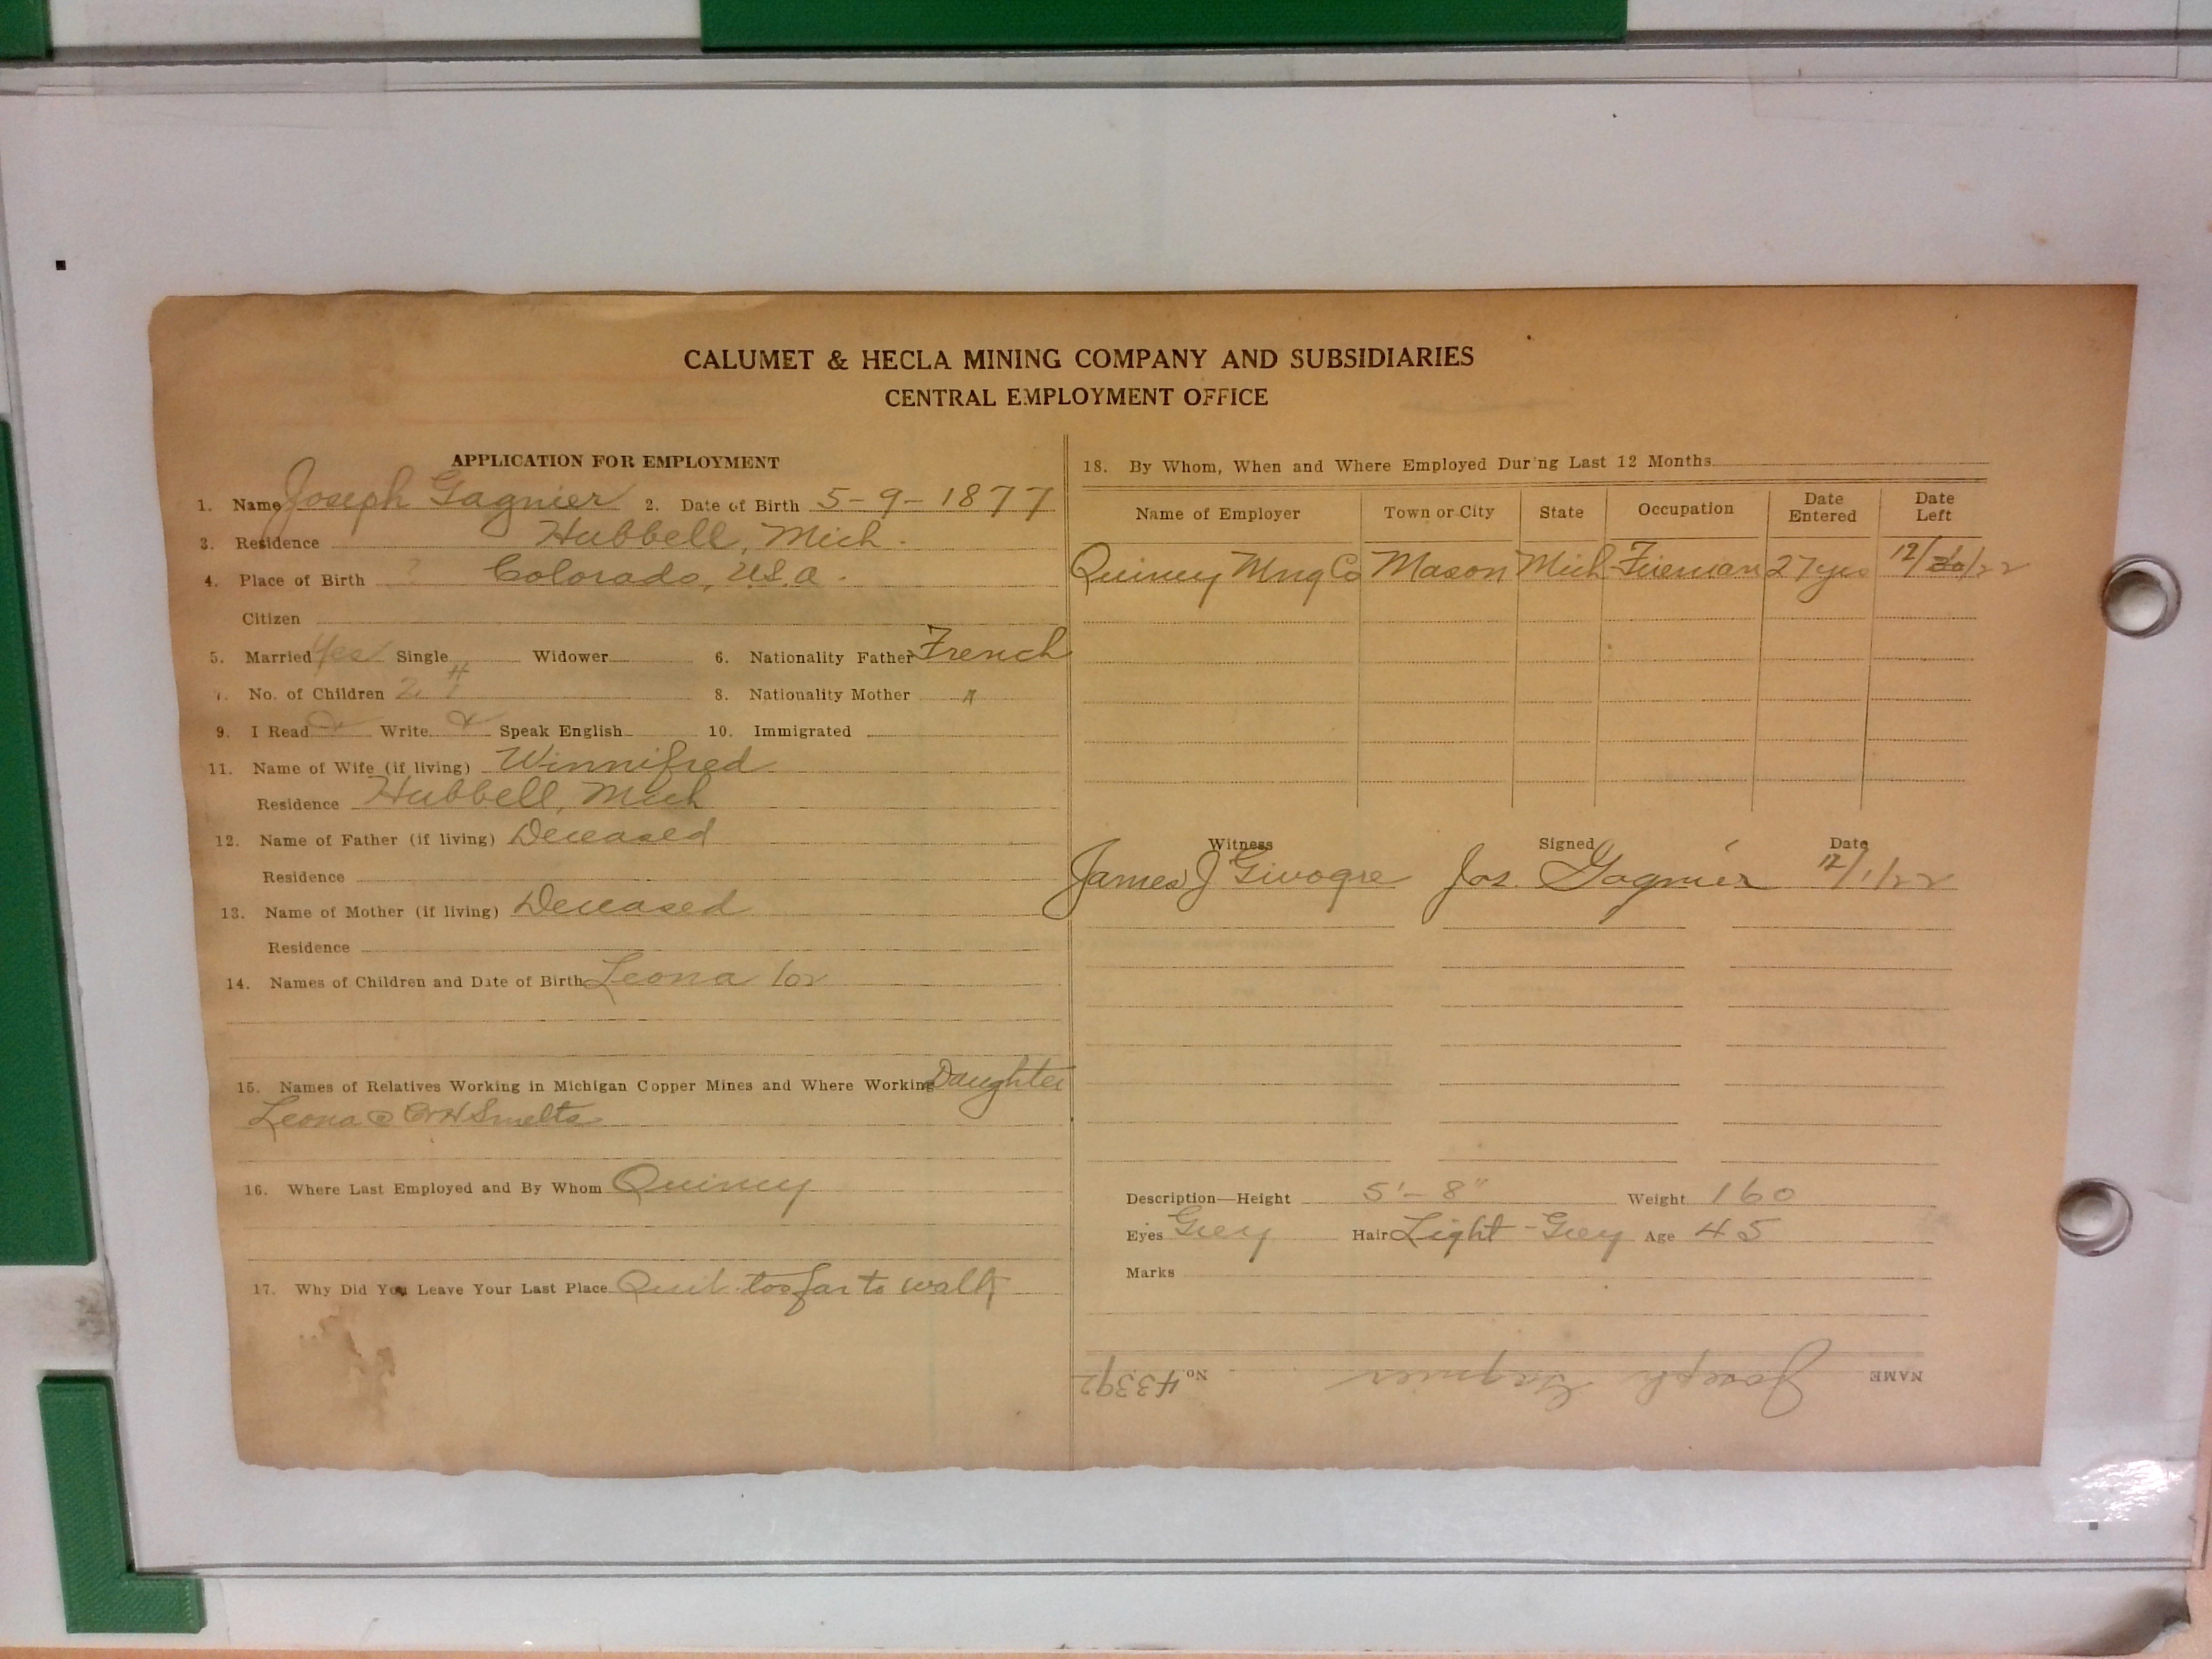 CALUMET & HECLA MINING COMPANY AND SUBSIDIARIES
CENTRAL EMPLOYMENT OFFICE
APPLICATION FOR EMPLOYMENT
1. Name Joseph Gagnier 2. Date of Birth 5-9-1877
3. Residence Hubbell, Mich.
4. Place of Birth ? Colorado, U.S.A.
Citizen
5. Married Yes Single Widower 6. Nationality Father French
7. No. of Children 2 8. Nationality Mother "
9. I Read Write Speak English 10. Immigrated
11. Name of Wife (if living) Winnifred
Residence Hubbell, Mich
12. Name of Father (if living) Deceased
Residence
13. Name of Mother (if living) Deceased
Residence
14. Names of Children and Date of Birth Leona
15. Names of Relatives Working in Michigan Copper Mines and Where Working Daughter
Leona @ C&H Smelts
16. Where Last Employed and By Whom Quincy
17. Why Did You Leave Your Last Place Quit too far to walk
18. By Whom, When and Where Employed During Last 12 Months
Name of Employer Town or City State Occupation Date Entered Date Left
Quincy Mng Co Mason Mich Fireman 27 yrs
Witness Signed Date
James J Jos. Gagnier 12/1/22
Description—Height 5'-8" Weight 160
Eyes Grey Hair Light-Grey Age 45
Marks
NAME Joseph Gagnier No. 43392